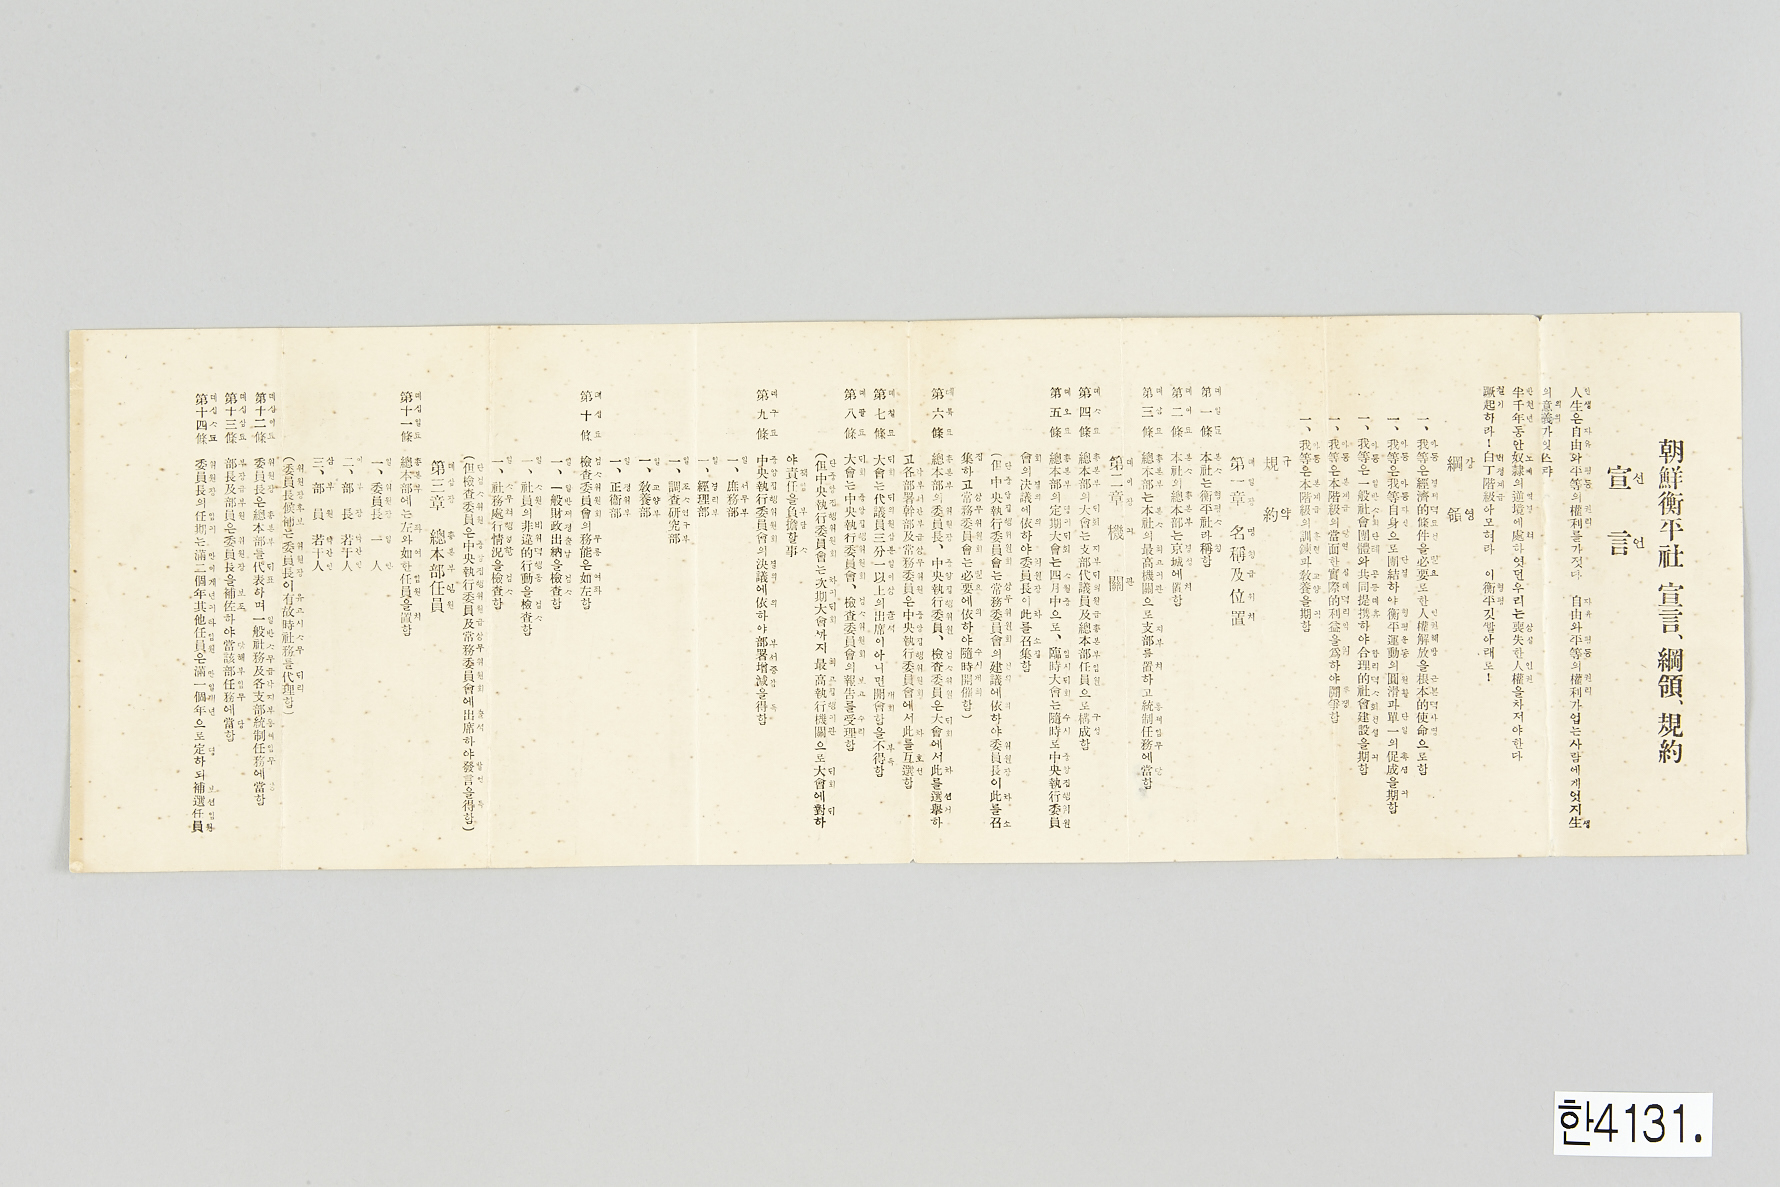 朝鮮衡平社 宣言、綱領、規約
宣言
人生은自由와平等의權利를가젓다 自由와平等의權利가업는사람에게엇지生
의意義가잇스랴
半千年동안奴隷의逆境에處하엿던우리는喪失한人權을차저야한다
蹶起하라！白丁階級아모혀라 이衡平깃발아래로！
綱領
一、我等은經濟的條件을必要로한人權解放을根本的使命으로함
一、我等은我等自身으로團結하야衡平運動의圓滑과單一의促成을期함
一、我等은一般社會團體와共同提携하야合理的社會建設을期함
一、我等은本階級의當面한實際的利益을爲하야鬪爭함
一、我等은本階級의訓鍊과敎養을期함
規約
第一章 名稱及位置
第一條 本社는衡平社라稱함
第二條 本社의總本部는京城에置함
第三條 總本部는本社의最高機關으로支部를置하고統制任務에當함
第二章 機關
第四條 總本部의大會는支部代議員及總本部任員으로構成함
第五條 總本部의定期大會는四月中으로、臨時大會는隨時로中央執行委員
會의決議에依하야委員長이此를召集함
(但中央執行委員會는常務委員會의建議에依하야委員長이此를召
集하고常務委員會는必要에依하야隨時開催함)
第六條 總本部의委員長、中央執行委員、檢査委員은大會에서此를選擧하
고各部署幹部及常務委員은中央執行委員會에서此를互選함
第七條 大會는代議員三分一以上의出席이아니면開會함을不得함
第八條 大會는中央執行委員會、檢査委員會의報告를受理함
(但中央執行委員會는次期大會까지最高執行機關으로大會에對하
야責任을負擔할事
第九條 中央執行委員會의決議에依하야部署增減을得함
一、庶務部
一、經理部
一、調査硏究部
一、敎養部
一、正衛部
第十條 檢査委員會의務能은如左함
一、一般財政出納을檢査함
一、社員의非違的行動을檢査함
一、社務處行情況을檢査함
(但檢査委員은中央執行委員及常務委員會에出席하야發言을得함)
第三章 總本部任員
第十一條 總本部에는左와如한任員을置함
一、委員長 一人
二、部長 若干人
三、部員 若干人
(委員長候補는委員長이有故時社務를代理함)
第十二條 委員長은總本部를代表하며一般社務及各支部統制任務에當함
第十三條 部長及部員은委員長을補佐하야當該部任務에當함
第十四條 委員長의任期는滿二個年其他任員은滿一個年으로定하되補選任員
한4131.